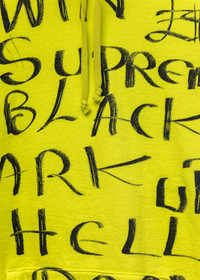 WIN
SUPREM
BLACK
ARK UP
HELL